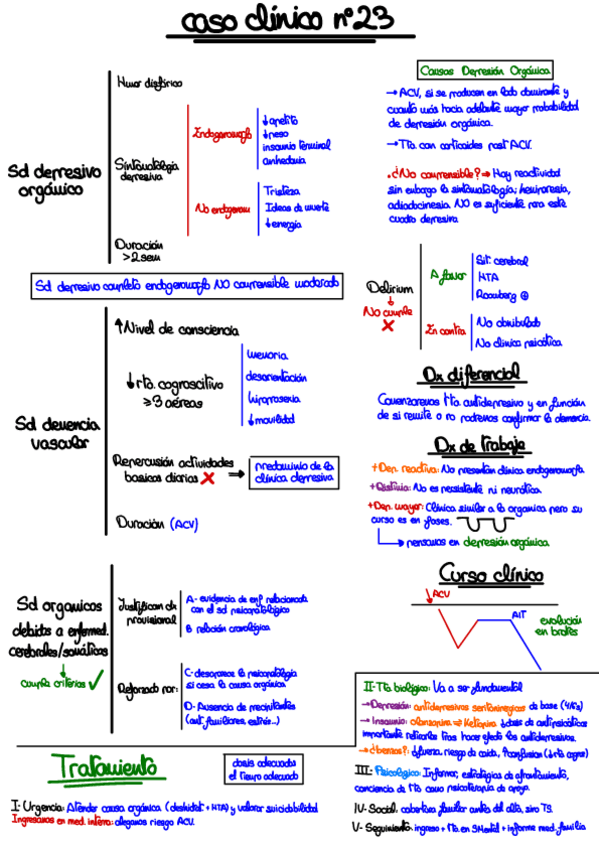 caso clínico nº23
Humor disfórico
Sd depresivo
orgánico
Sintomatología
depresiva
Endogenomorfo
↓apetito
↓peso
insomnio terminal
anhedonia
No endogenom
Tristeza
Ideas de muerte
↓energía
Duración
>2sem
Sd depresivo completo endogenomorfo NO comprensible moderado
Causas Depresión Orgánica
→ACV, si se producen en lado dominante y
cuanto más hacia adelante mayor probabilidad
de depresión orgánica.
→Tto con corticoides post ACV.
•¿No comprensible?→ Hay reactividad
sin embargo la sintomatología; hemiparesia,
adiadocinesia. NO es suficiente para este
cuadro depresivo.
Delirium
No cumple
A favor
Sit. cerebral
HTA
Romberg ⊕
En contra
No obnubilado
No clínica psicótica
Sd demencia
vascular
↑Nivel de consciencia
↓rto. cognoscitivo
≥3 aéreas
memoria
desorientación
hipoprosexia
↓movilidad
Repercusión actividades
basicas diarias
→ predominio de la
clínica depresiva
Duración (ACV)
Dx diferencial
Comenzaremos tto antidepresivo y en función
de si remite o no podremos confirmar la demencia.
Dx de trabajo
+Dep. reactiva: No presentan clínica endogenomorfa
+Distimia: No es persistente ni neurótica.
+Dep. mayor: Clínica similar a la organica pero su
curso es en fases.
→ pensamos en depresión orgánica
Sd organicos
debidos a enfermed.
cerebrales/somáticas
cumple criterios ✓
Justifican dx
provisional
A- evidencia de enf relacionada
con el sd psicopatológico
B relación cronológica
Reforzado por:
C- desaparece la psicopatología
si cesa la causa orgánica
D- Ausencia de precipitantes
(ant familiares, estrés...)
Curso clínico
ACV
AIT
evolución
en brotes
Tratamiento
dosis adecuadas
al tiempo adecuado
I- Urgencia: Atender causa orgánica (deshidat + HTA) y valorar suicidabilidad
Ingresamos en med. interna: alegamos riesgo ACV.
II- Tto biológico: Va a ser fundamental
→Depresión: antidepresivos serotoninergicos de base
→Insomnio: olanzapina ⇌ Ketiapina ↓dosis de antipsicóticos
importante retirarlos tras hacer efecto los antidepresivos.
→¿benzos?: difuerza, riesgo de caída,
III- Psicológico: Informar, estrategias de afrontamiento,
conciencia de tto como psicoterapia de apoyo.
IV- Social: cobertura familiar antes del alta, sino TS.
V- Seguimiento: ingreso + tto en SMental + informe med. familia